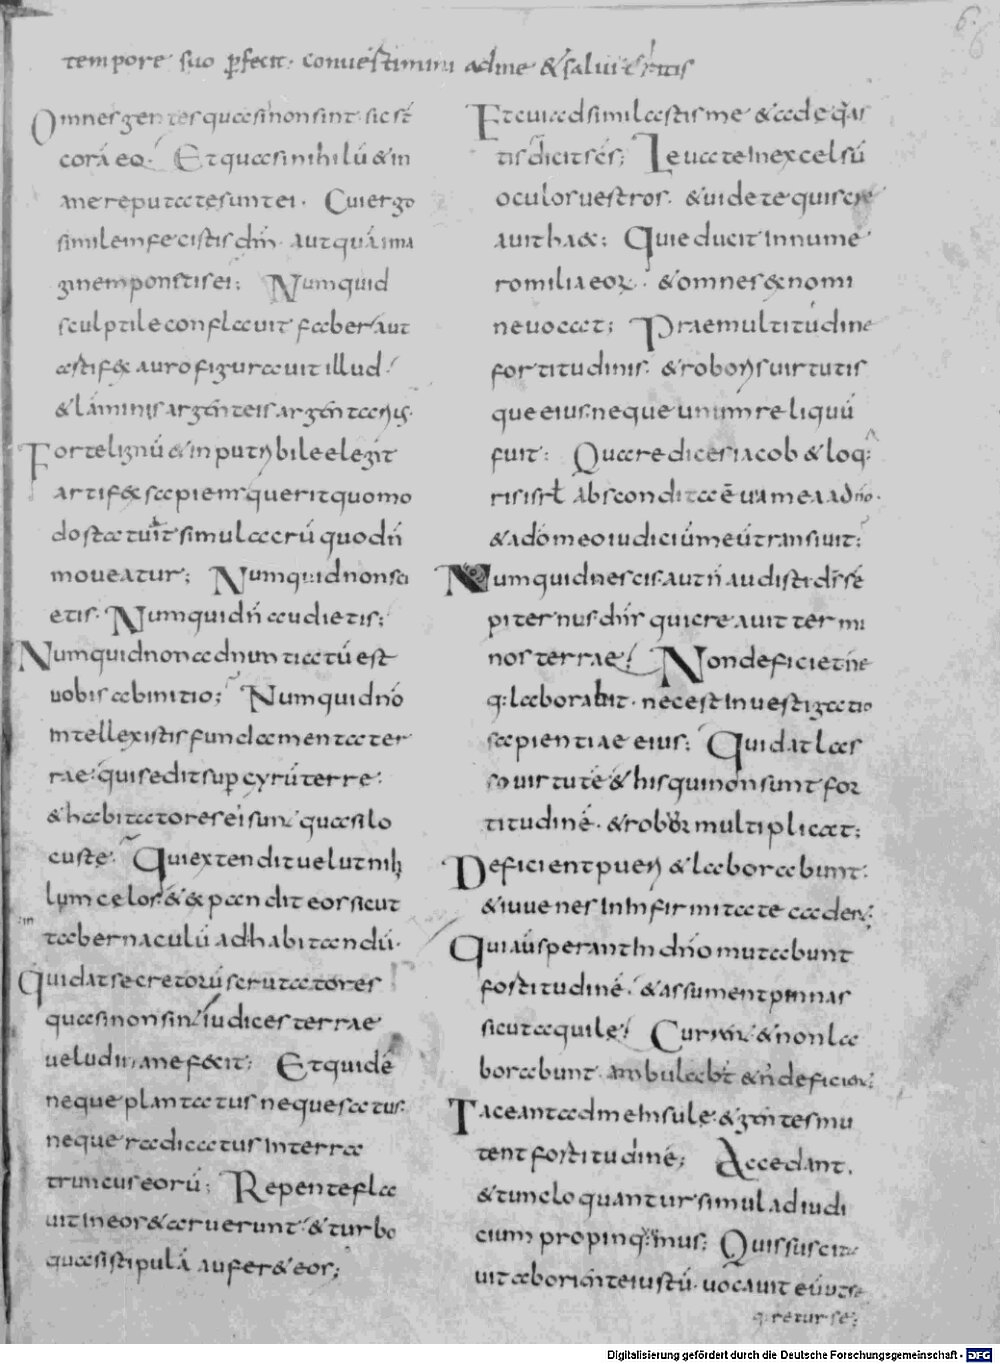 6.
6
tempore suo ꝑfecit. conuertimini ad me & salui eritis
Omnes gentes quasi non sint. sic sr̄
corā eo. Et quasi nihilū & in
ane reputatesunt ei. Cui ergo
similem fecistis dm̄. aut quā ima
ginem ponstis ei; Numquid
sculptile conflauit faber aut
astifex auro figurauit illud
& laminis argenteis argentariꝰ.
Forte lignū & inputribile elegit
artifex sapiens querit quomo
do statuit simulacrū quod n̄
moueatur; Numquid non sci
etis. Numquid n̄ audietis;
Numquid non adnuntiatū est
uobis ab initio; Numquid nō
intellexistis fundamenta ter
rae. qui sedit suꝑ gyrū terre.
& habitatores ei sunt quasi lo
custe. Qui extendit uelut nihi
lum celos & expandit eos sicut
in
tabernaculū ad habitandū.
Qui dat secretorū scrutatores
quasi non sint iudices terrae
uelud inane fecit; Et quidē
neque plantatus neque satus
neque radicatus in terra
truncus eorū; Repente fla
uit in eos & aruerunt. & turbo
quasi stipulā auferet eos;
Et cui adsimilastis me & adeq̄as
tis dicit sc̄s; Leuate in excelsū
oculos uestros. & uidete quis cre
auit haec; Qui educit in nume
ro militia eoꝝ. & omnes ex nomi
ne uocat; Prae multitudine
fortitudinis. & roboris uirtutis
que eius. neque unum reliquū
fuit; Quare dicis iacob & loq̄
ris isrł Abscondita ē uia mea a dn̄o.
& a dō meo iudiciū meū transiuit;
Numquid nescis aut n̄ audisti dr̄ sē
piternus dn̄s qui creauit termi
nos terrae; Non deficiet ne
q: laborabit. nec est inuestigatio
sapientiae eius; Qui dat las
so uirtutē & his qui non sunt for
titudinē. & robor multiplicat;
Deficient pueri & laborabunt
& iuuenes in infirmitate cadent;
Qui aūt sperant in dn̄o mutabunt
fortitudinē. & assument pennas
sicut aquile; Current & non la
borabunt ambulabt̄ & n̄ deficient;
Taceant ad me insule. & gentes mu
tent fortitudinē; Accedant.
& tunc loquantur simul ad iudi
cium propinq̄mus; Quis suscita
uit ab oriente iustū. uocauit eū ut se
q̄retur se;
Digitalisierung gefördert durch die Deutsche Forschungsgemeinschaft - DFG